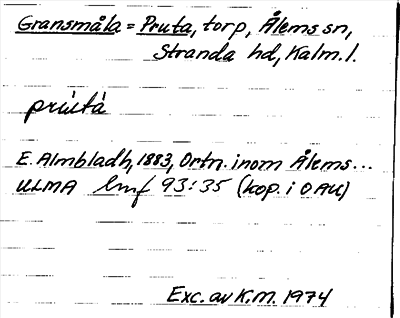 Gransmåla = Pruta, torp, Ålems sn,
Stranda hd, Kalm. l.
prútà
E. Almbladh, 1883, Ortn. inom Ålems...
ULMA hmf 93:35 (kop. i OAU)
Exc. av K.M. 1974